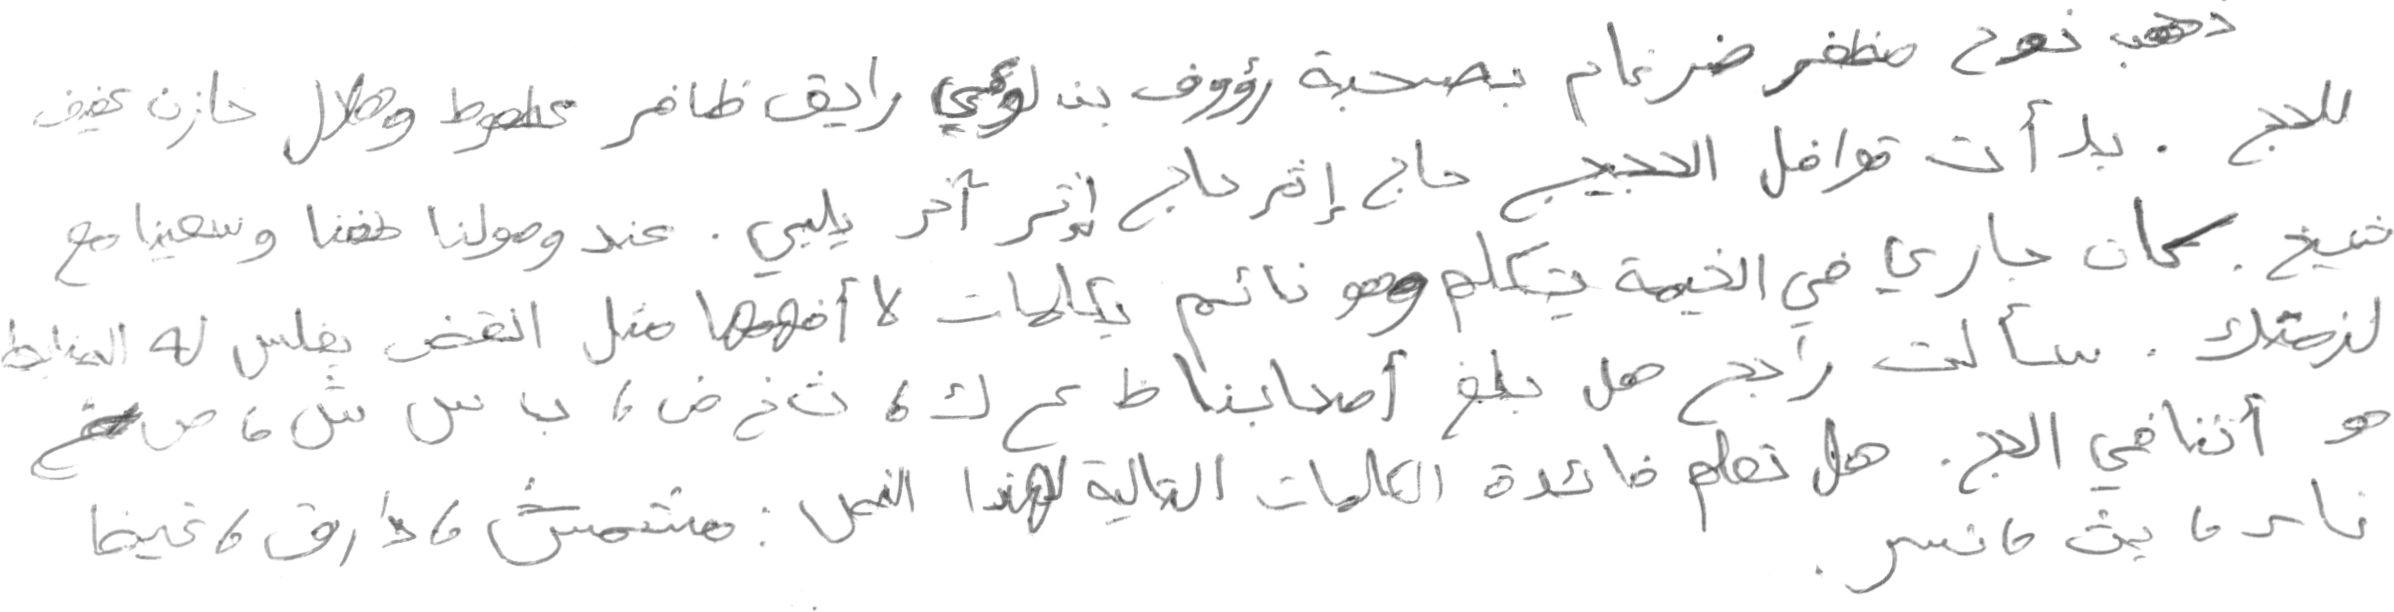 ذهب نوح مظفر ضرغام بصحبة رؤوف بن لؤي رايق ظافر محظوظ وهلال خازن عفيف
للحج . بدأت قوافل الحجيج حاج إثر حاج إثر آخر يلبي . عند وصولنا طفنا وسعينا مع
شيخ . كان جاري في الخيمة يتكلم وهو نائم بكلمات لا أفهمها مثل انقض بفلس له الضابط
لزمتك . سألت راجح هل بلغ أصحابنا ط ع ك ، ث خ ض ، ب س ش ، ص غ
هو أتنا في الحج . هل تعلم فائدة الكلمات التالية لهذا النص : مشمش ، دارق ، غيضا
نار ، يث ، نسر .